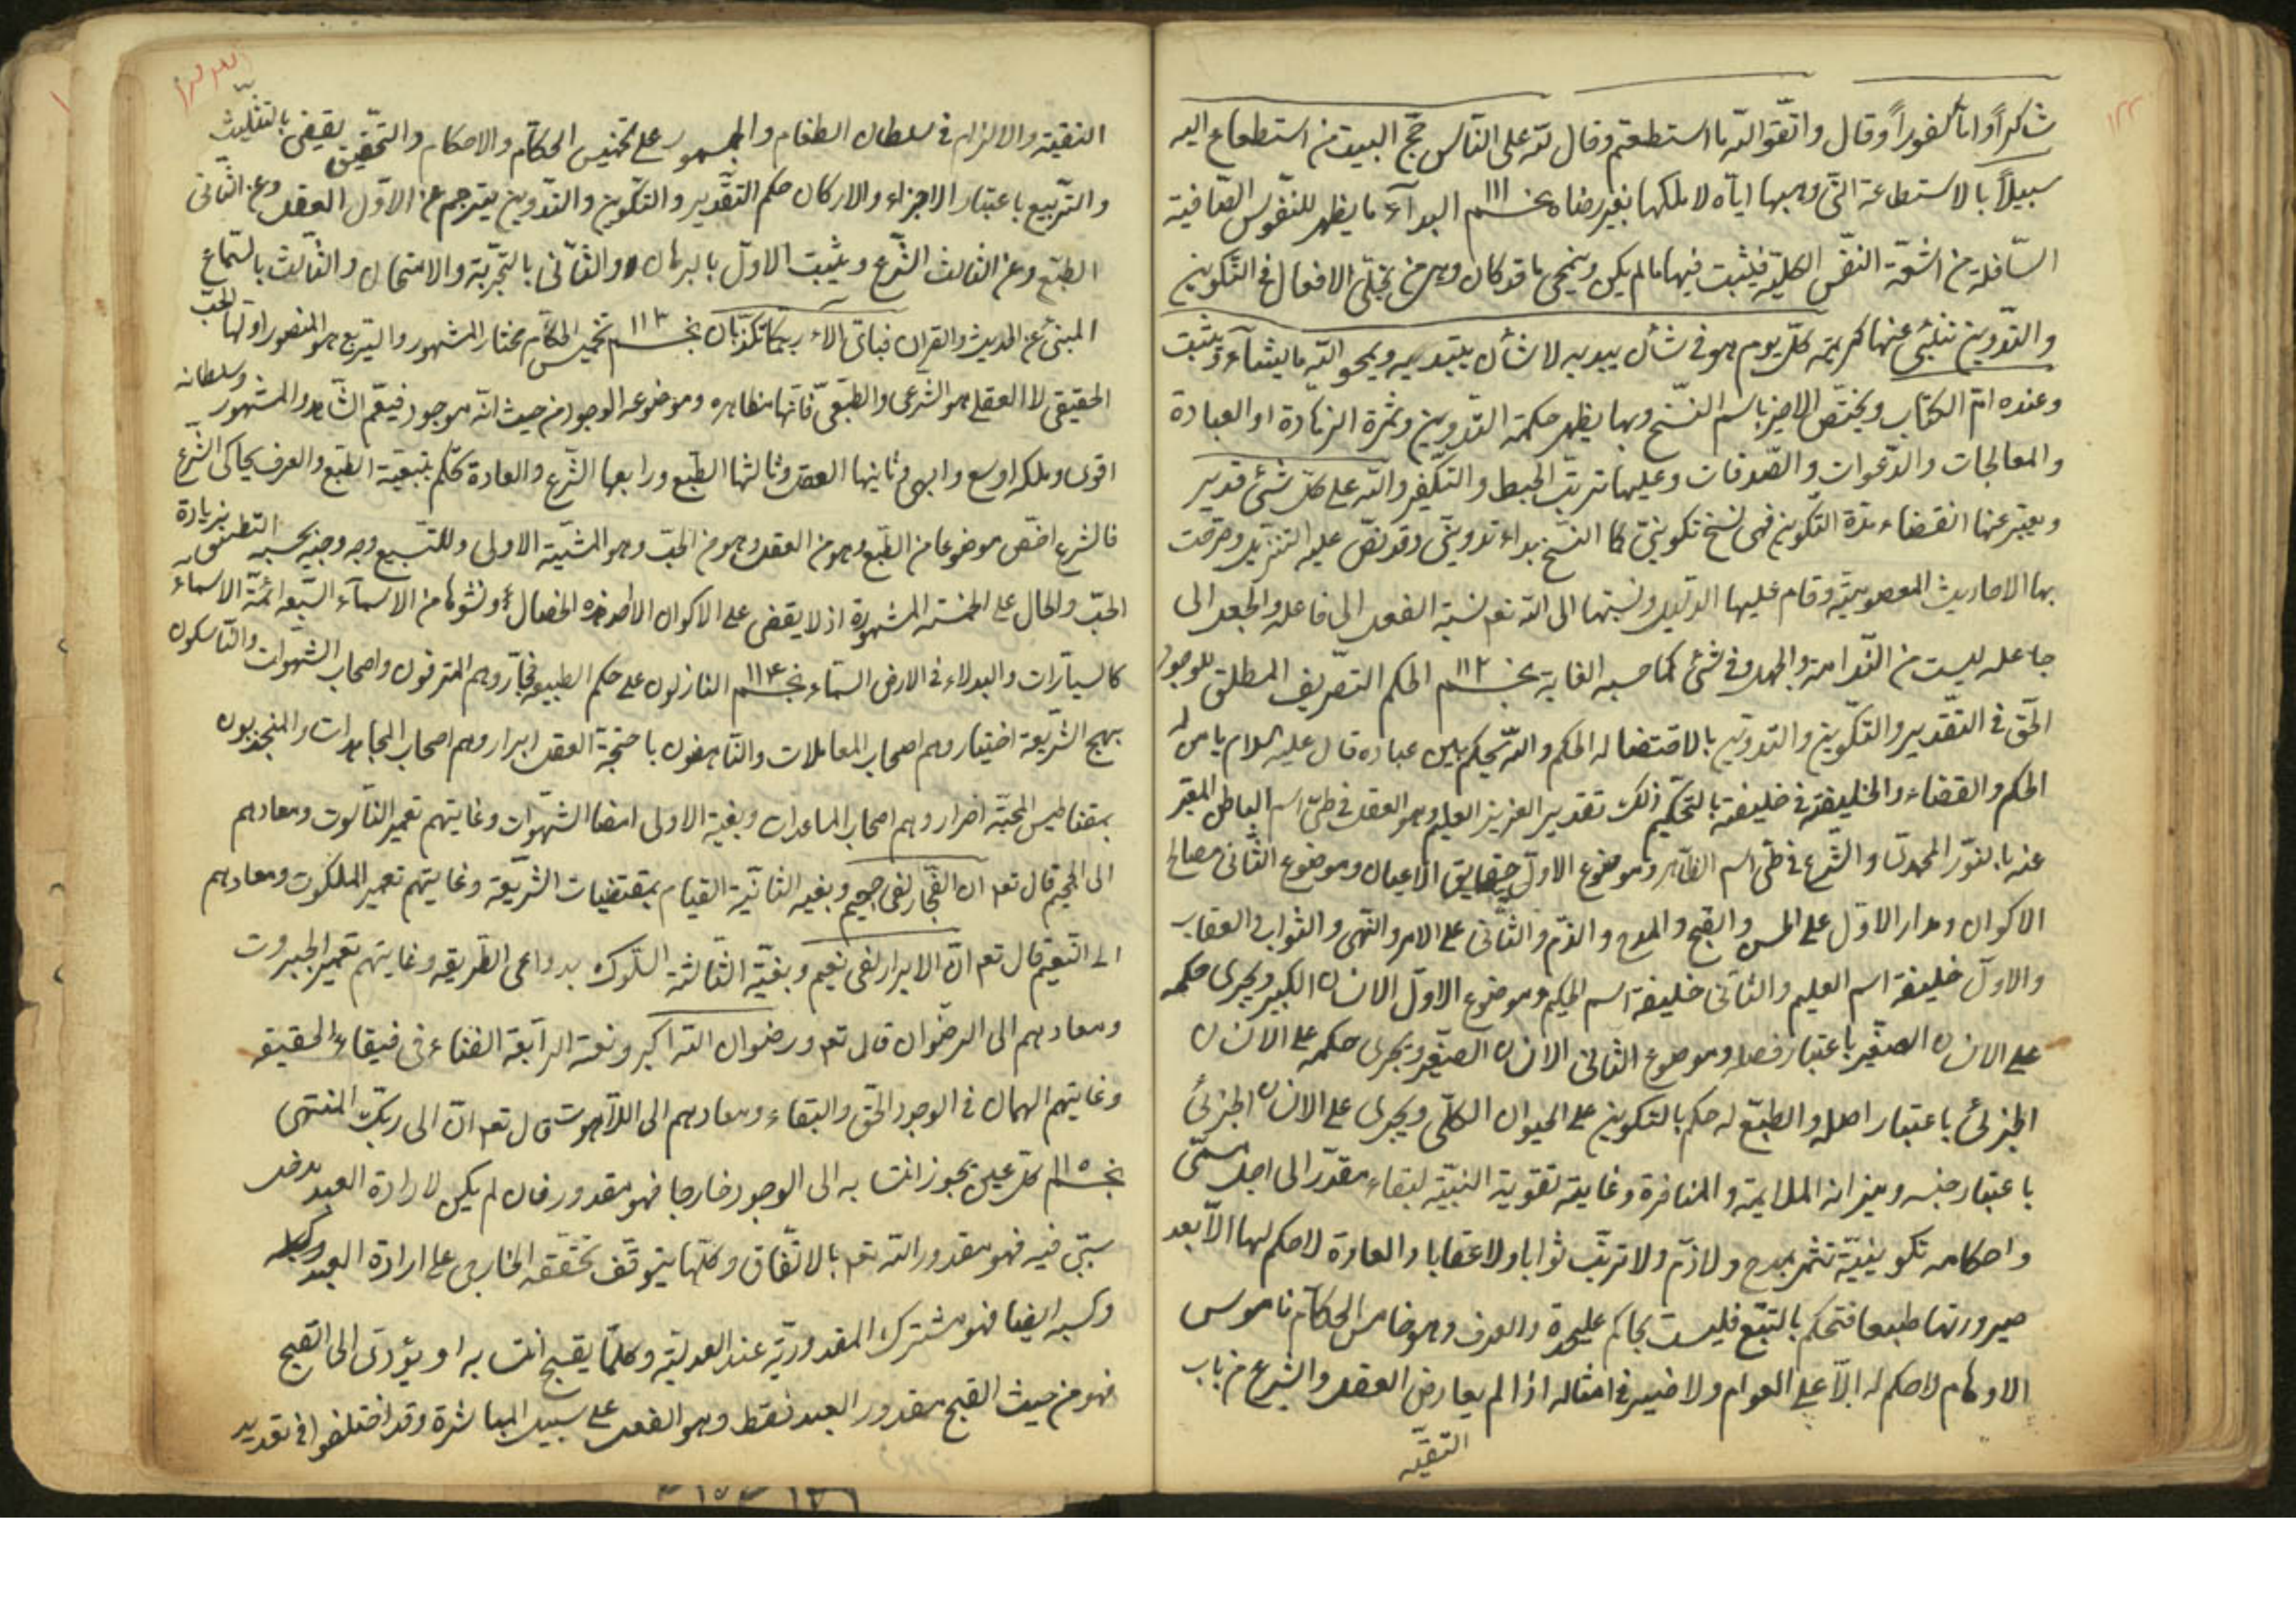 شاكراً واما كفوراً وقال واتّقوا اللّه ما استطعتم وقال للّه على النّاس حجّ البيت من استطاع اليه
سبيلاً بالاستطاعة الّتى وهبها ايّاه لا ملكها بغير رضاه نجـــم ١١١ البدآء ما يظهر للنّفوس الصّافية
السّافلة من اشعّة النّفس الكليّة فيثبت فيها ما لم يكن ويمحى ما قد كان وهى من تجلّى الافعال فى التّكوين
والتّدوين تنبئى عنها كريمة كلّ يوم هو فى شأن يبديه لا شأن يبتديه ويمحو اللّه ما يشآء ويثبت
وعنده امّ الكتاب ويختصّ الاخير باسم النّسخ وبها يظهر حكمة التّدوين وثمرة الزّهادة او العبادة
والمعالجات والدّعوات والصّدقات وعليها ترتّب الحبط والتّكفير واللّه على كلّ شئ قدير
ويعبّر عنها انقضاء مدّة التّكوين فهى نسخ تكوينىّ كما النّسخ بداء تدوينىّ وقد نصّ عليه التنزيل وصرّحت
بها الاحاديث المعصوميّة وقام عليها الدّليل ونسبتها الى اللّه تعـ نسبة الفعل الى فاعله والجعل الى
جاعله ليست من النّدامة والجهل فى شئ كما حسبه الغاية نجـــم ١١٢ الحكم التّصريف المطلق للوجود
الحقّ فى التّقدير والتّكوين والتّدوين بالاقتضا له الحكم واللّه يحكم بين عباده قال عليه السلام يا من له
الحكم والقضاء والخليفة فى خليفته بالتّحكيم ذلك تقدير العزيز العليم وهو العقل فى طىّ اسم الباطن المعبّر
عنه بالنّور المحمدىّ والشّرع فى طىّ اسم الظاهر وموضوع الاوّل حقايق الاعيان وموضوع الثّانى مصالح
الاكوان ومدار الاوّل على الحسن والقبح والمدح والذّم والثّانى على الامر والنّهى والثواب والعقاب
والاوّل خليفة اسم العليم والثّانى خليفة اسم الحكيم وموضوع الاوّل الانسان الكبير ويجرى حكمه
على الانسان الصغير باعتبار فصله وموضوع الثّانى الانسان الصّغير ويجرى حكمه على الانسان
الجزئى باعتبار اصله والطبع له حكم بالتكوين على الحيوان الكلّى ويجرى على الانسان الجزئى
باعتبار جنسه وميزانه الملايمة والمنافرة وغايته تقوية البنيّة لبقاء مقدّر الى اجل مسمّى
واحكامه تكوينيّة تثمر بمدح ولا ذمّ ولا ترتّب ثوابا ولا عقابا والعادة لا حكم لها الاّ بعد
صيرورتها طبعا فتحكم بالتبّع فليست بحاكم عليحدة والعرف وهو خامس الحكّام ناموس
الاوهام لا حكم له الاّ على العوام ولا ضير فى امثاله اذا لم يعارض العقل والشرع من باب
التقيّه
التقيّة والالزام فى سلطان الطغام والجمهور على تخميس الحكّام والاحكام والتّحقيق يقضى بالتثليث
والتّربيع باعتبار الاجزاء والاركان حكم التّقدير والتّكوين والتّدوين يترجم عن الاوّل العقل وعن الثّانى
الطبّع وعن الثالث الشّرع ويثبت الاوّل بالبرهان والثّانى بالتّجربة والامتحان والثّالث بالسّماع
المبنى عن الحديث والقران فباىّ الاء ربّكما تكذّبان نجـــم ١١٣ تخميس الحكّام مختار المشهور والتّربيع هو المنصور اوّلها الحبّ
الحقيقى لا العقلى هو الشّرعى والطبّعىّ فانّها مظاهره وموضوعه الوجود من حيث انّه موجود فيعمّ الشّاهد والمشهود وسلطانه
اقوى وملكه اوسع وابهى وثانيها العقل وثالثها الطبّع ورابعها الشّرع والعادة تحكم بتبعيّة الطبّع والعرف يحاكى الشّرع
فالشرع اخصّ موضوعا من الطبّع وهو من العقل وهو من الحبّ وهو المشيّة الاولى وللتّسبيع وجه وجيه يحسبه التطبيق بزيادة
الحبّ والحال على الخمسة المشهورة اذ لا يقضى على الاكوان الا هذه الخصال ونشوها من الاسمآء السّبعه ائمّة الاسماء
كالسيّارات والبدلاء فى الارض السمّاء نجـــم ١١٤ النازلون على حكم الطبيعه فجّار وهم المترفون واصحاب الشهوات والنّاسكون
بهج الشريّعة اخيتار وهم اصحاب المعاملات والنّاهضون باجنحة العقل ابرار وهم اصحاب المجاهدات والمنجذبون
بمقناطيس المحبّة احرار وهم اصحاب المساعدات وبغية الاولى امضا الشّهوات وغايتهم تعمير النّاسوت ومعادهم
الى الجحيم قال تعـ ان الفجّار لفى جحيم وبغيه الثانيّة القيام بمقتضيات الشريّعة وغايتهم تعمير الملكوت ومعادهم
الى النّعيم قال تعـ انّ الابرار لفى نعيم وبغيّة الثّالثة السّلوك بدواعى الطّريقه وغايتهم تعمير الجبروت
ومعادهم الى الرضّوان قال تعـ ورضوان اللّه اكبر وبغية الرّابعة الفناء فى فيفاء الحقيقه
وغايتهم الهيمان فى الوجود الحقّ والبقاء ومعادهم الى اللّاهوت قال تعـ انّ الى ربّك المنتهى
نجـــم ١١٥ كلّ عين يجوز انت به الى الوجود خارجا فهو مقدور فان لم يكن لارادة العبد مدخل
سببىّ فيه فهو مقدور اللّه تعـ بالاتّفاق وكلّما يتوقّف تحقّقه الخارجى على ارادة العبد
وكسبه ايضا فهو مشترك المقدوريّة عند العدليّه وكلّما يقبح انت به او يؤدّى الى القبح
فهو من حيث القبح مقدور العبد فقط وهو الفعل على سبيل المباشرة وقد اختلفوا فى تقدير